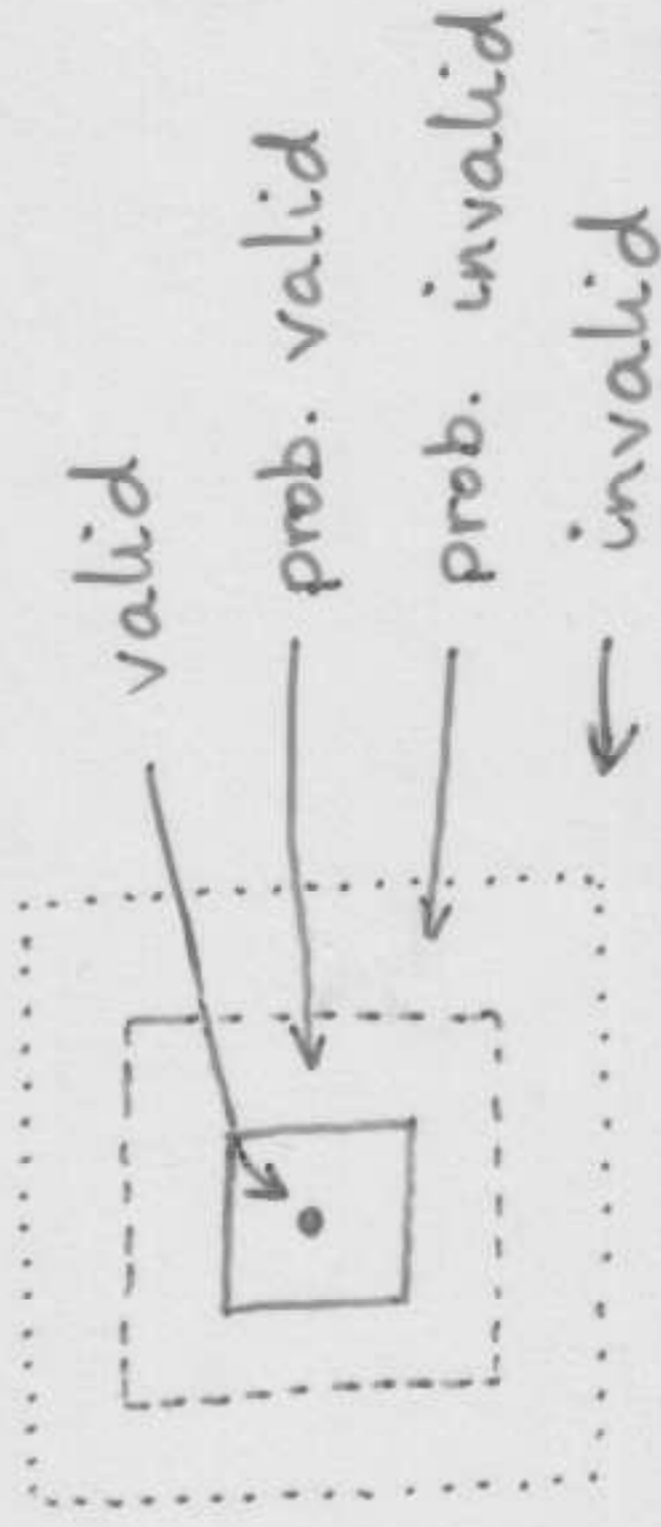 valid
prob. valid
prob. invalid
invalid